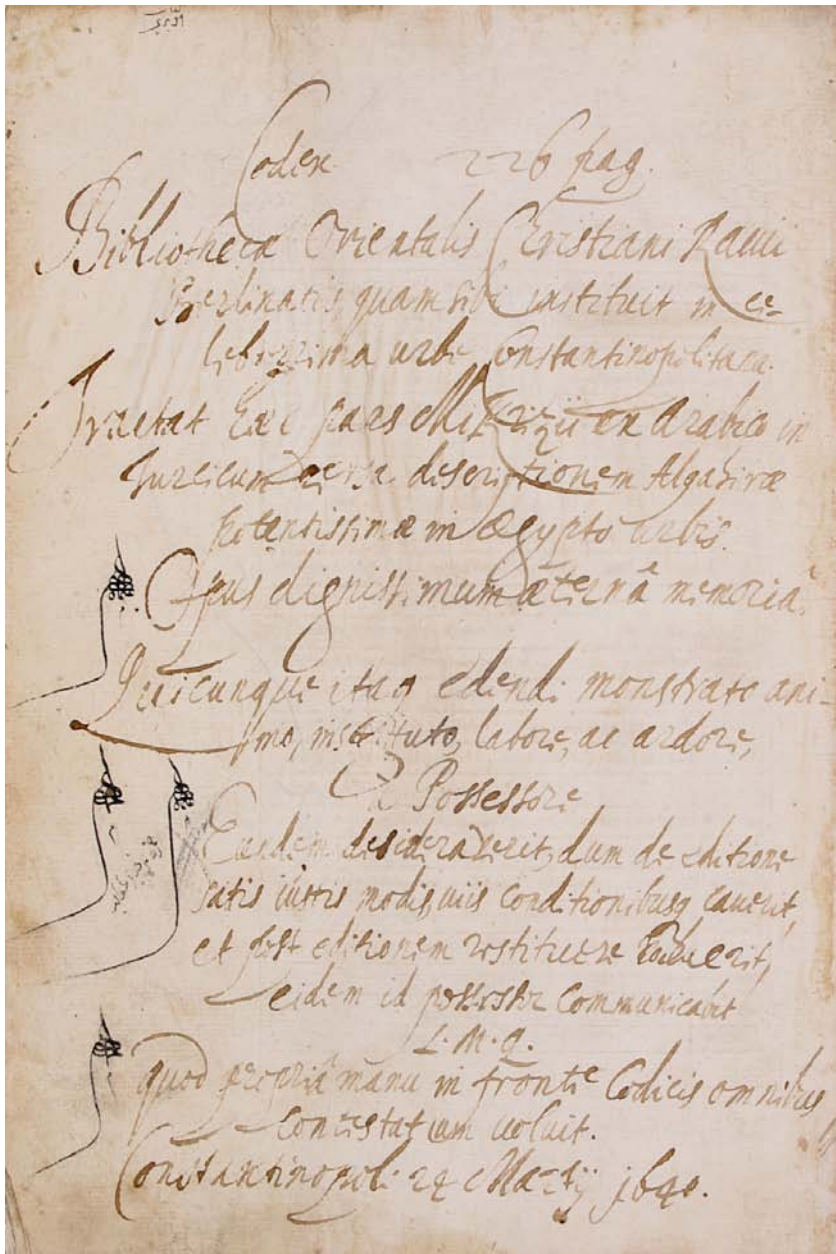 Codex 226 pag.
Bibliothecæ Orientalis Christiani Ravii
Berlinatis, quam sibi instituit in ce-
leberrima urbe Constantinopolitana.
Tractat hæc pars Makrizii ex Arabico in
Turcicum versa descriptionem Alqahiræ
potentissimæ in Ægypto urbis.
Opus dignissimum æternâ memoriâ.
Quicunque itaq edendi monstrato ani-
mo, instituto, labore, ac ardore,
a Possessore
Eundem desideraverit, dum de editione
satis iustis modis, uiis conditionibusq cauerit,
et post editionem restituere uoluerit,
eidem id possessor communicabit
L. M. q.
quod propriâ manu in fronte Codicis omnibus
contestatum uoluit.
Constantinopoli 24 Martij 1640.